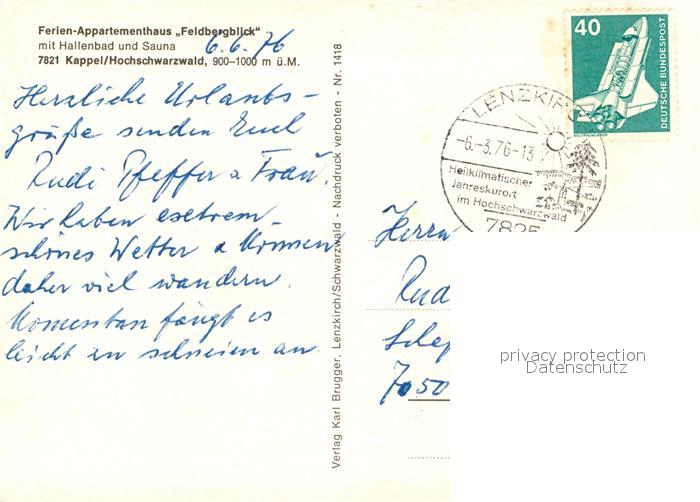 Ferien-Appartementhaus „Feldbergblick"
mit Hallenbad und Sauna
7821 Kappel/Hochschwarzwald, 900–1000 m ü.M.
6.6.76
Herzliche Urlaubs-
grüße senden Euch
Rudi Pfeffer u Frau.
Wir haben exetrem
schönes Wetter u können
daher viel wandern.
Momentan fängt es
leicht zu schneien an
Verlag Karl Brugger, Lenzkirch/Schwarzwald - Nachdruck verboten - Nr. 1418
40
DEUTSCHE BUNDESPOST
WELTRAUMLABOR
LENZKIRCH
-6.-3.76-13
Heilklimatischer
Jahreskurort
im Hochschwarzwald
7825
Herrn
Rud
7050
privacy protection
Datenschutz